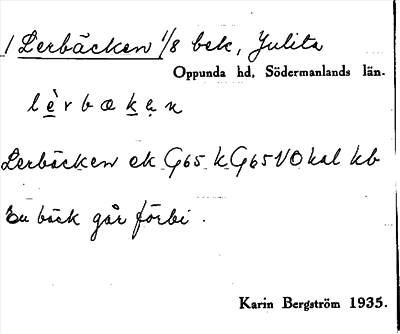 / Lerbäcken 1/8 bebt, Julita
Oppunda hd, Södermanlands län.
lè̱rbæḵa̤n
Lerbäcken ek G65 k G65 1/0 kal kb
En bäck går förbi.
Karin Bergström 1935.